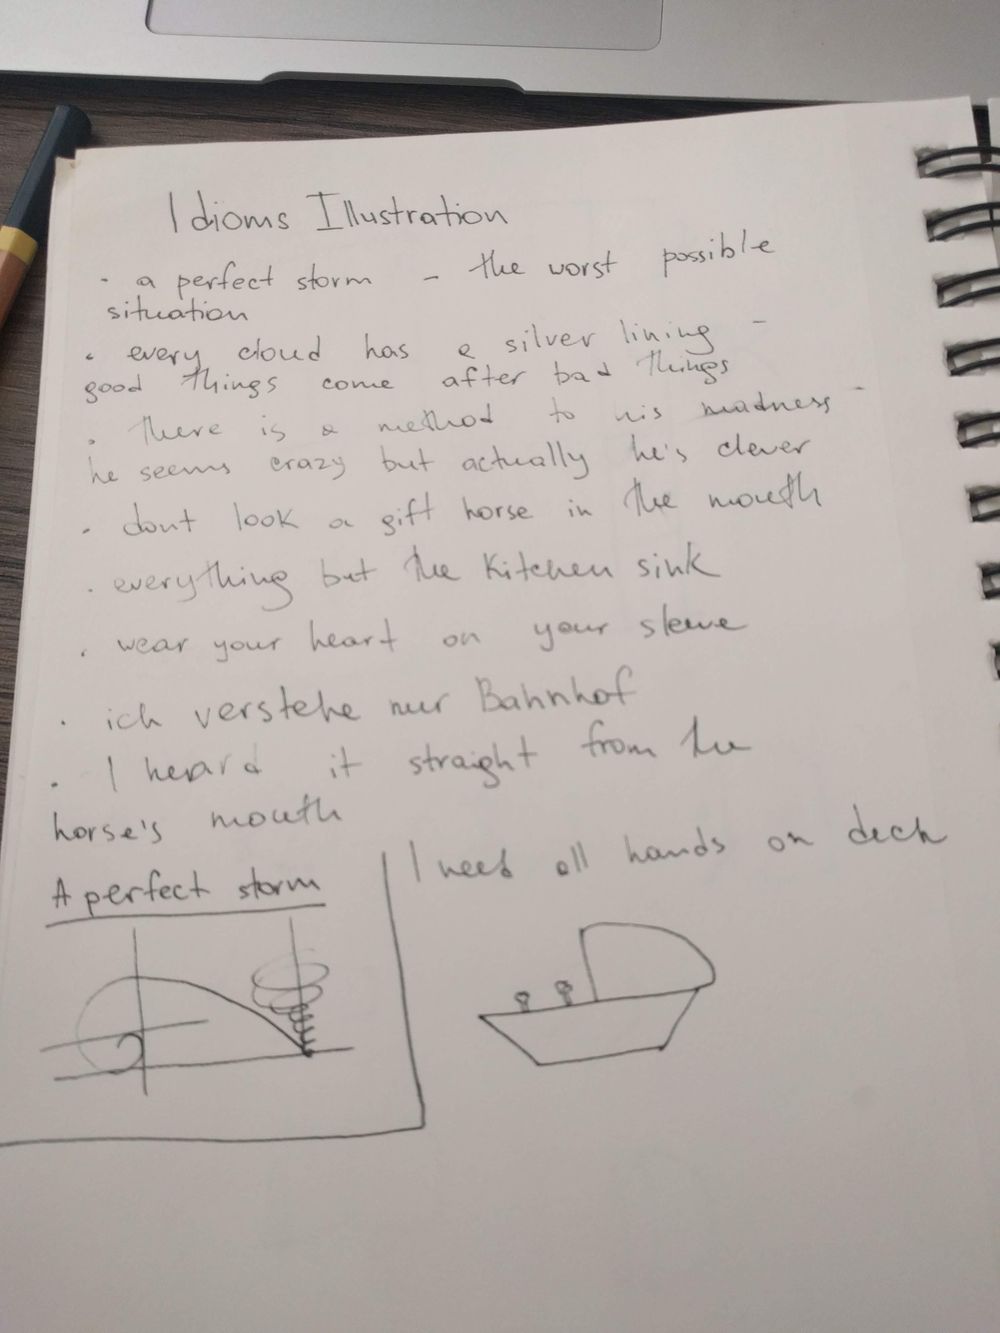 Idioms Illustration
- a perfect storm - the worst possible
situation
• every cloud has a silver lining -
good things come after bad things
• there is a method to his madness -
he seems crazy but actually he's clever
• dont look a gift horse in the mouth
• everything but the kitchen sink
• wear your heart on your sleeve
• ich verstehe nur Bahnhof
• I heard it straight from the
horse's mouth
A perfect storm
I need all hands on deck